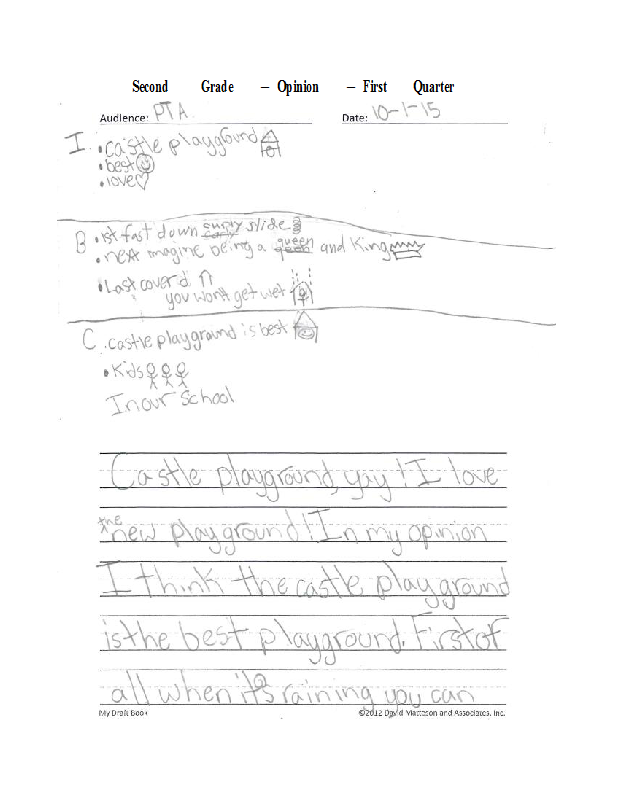 Second Grade – Opinion – First Quarter
Audience: PTA Date: 10-1-15
I. • castle playground
• best
• love
B • 1st fast down curvy slide
• next imagine being a queen and King
• Last cover'd
you wont get wet
C . castle playground is best
• Kids
In our School
Castle playground, yay! I love
the
new playground! In my opinion
I think the castle playground
is the best playground. First of
all when it's raining you can
My Draft Book ©2012 David Matteson and Associates, Inc.